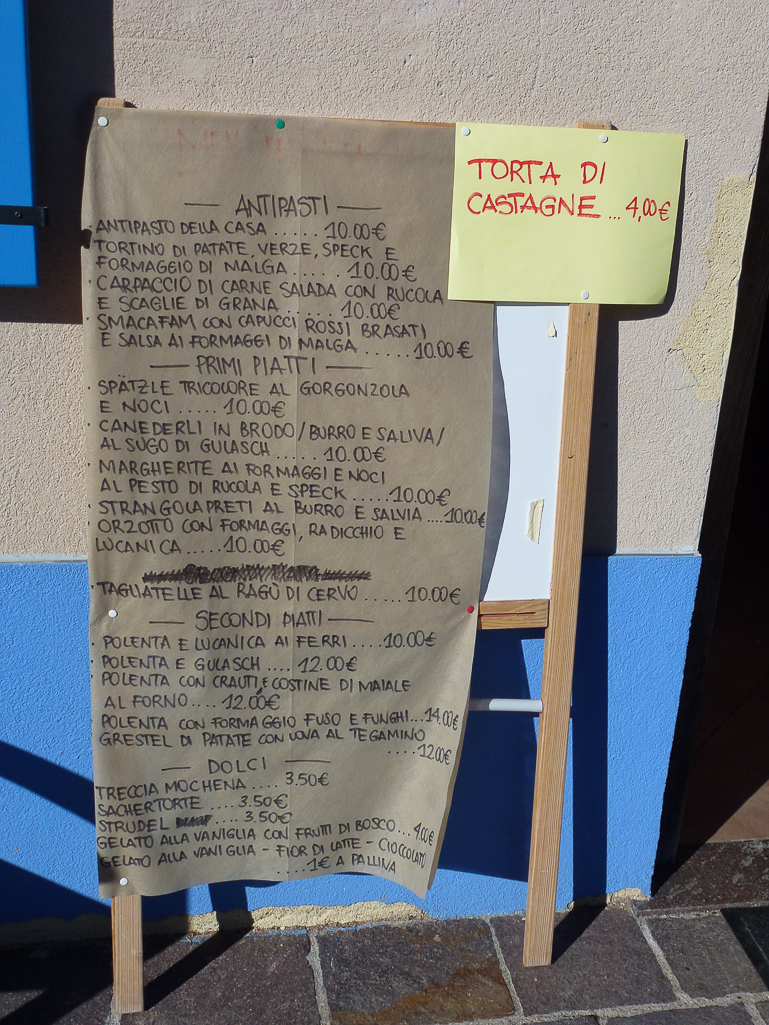 — ANTIPASTI —
· ANTIPASTO DELLA CASA ...... 10.00€
TORTINO DI PATATE, VERZE, SPECK E
FORMAGGIO DI MALGA ...... 10.00€
· CARPACCIO DI CARNE SALADA CON RUCOLA
E SCAGLIE DI GRANA ....... 10.00€
· SMACAFAM CON CAPUCCI ROSSI BRASATI
E SALSA AI FORMAGGI DI MALGA ...... 10.00€
— PRIMI PIATTI —
· SPÄTZLE TRICOLORE AL GORGONZOLA
E NOCI ..... 10.00€
· CANEDERLI IN BRODO/BURRO E SALIVA/
AL SUGO DI GULASCH ..... 10.00€
· MARGHERITE AI FORMAGGI E NOCI
AL PESTO DI RUCOLA E SPECK .....10.00€
· STRANGOLAPRETI AL BURRO E SALVIA ....10.00€
· ORZOTTO CON FORMAGGI, RADICCHIO E
LUCANICA .....10.00€
· TAGLIATELLE AL RAGÙ DI CERVO ..... 10.00€
— SECONDI PIATTI —
· POLENTA E LUCANICA AI FERRI ....10.00€
· POLENTA E GULASCH .... 12.00€
· POLENTA CON CRAUTI E COSTINE DI MAIALE
AL FORNO .... 12.00€
· POLENTA CON FORMAGGIO FUSO E FUNGHI...14.00€
GRESTEL DI PATATE CON UOVA AL TEGAMINO
.... 12.00€
— DOLCI —
TRECCIA MOCHENA .... 3.50€
SACHERTORTE .... 3.50€
STRUDEL .... 3.50€
GELATO ALLA VANIGLIA CON FRUTTI DI BOSCO ... 4.00€
GELATO ALLA VANIGLIA - FIOR DI LATTE - CIOCCOLATO
.....1€ A PALLINA
TORTA DI
CASTAGNE ... 4,00€